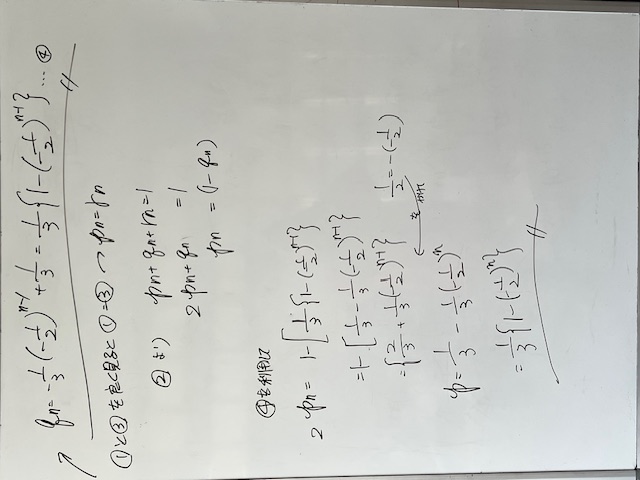 qn = -1/3(-1/2)^{n-1} + 1/3 = 1/3{1-(-1/2)^{n-1}} … ④
①と③を良く見ると ①=③ → pn=rn
②より pn+qn+rn=1
2pn+qn =1
pn =(1-qn)
④を利用して
2pn = 1-[1/3{1-(-1/2)^{n-1}}]
=1-[1/3-1/3(-1/2)^{n-1}]
={2/3+1/3(-1/2)^{n-1}} ← 1/2=-(-1/2)
p=1/3-1/3(-1/2)^n
=1/3{1-(-1/2)^n}